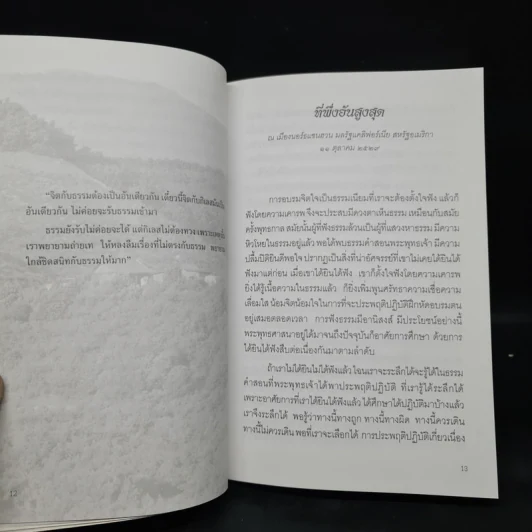 “จิตกับธรรมต้องเป็นอันเดียวกัน เดี๋ยวนี้จิตกับกิเลสมันเป็น
อันเดียวกัน ไม่ค่อยจะรับธรรมเข้ามา
ธรรมยังรับไม่ค่อยจะได้ แต่กิเลสไม่ต้อง
เราพยายามถ่ายเท ให้หลงลืมเรื่องที่ไม่ตรงกับธรรม
ใกล้ชิดสนิทกับธรรมให้มาก”
12
ที่พึ่งอันสูงสุด
ณ เมืองนอร์ธแชนฮวน มลรัฐแคลิฟอร์เนีย สหรัฐอเมริกา
๑๑ ตุลาคม ๒๕๒๙
การอบรมจิตใจเป็นธรรมเนียมที่เราจะต้องตั้งใจฟัง แล้วก็
ฟังโดยความเคารพ จึงจะประสบมีดวงตาเห็นธรรม เหมือนกับสมัย
ครั้งพุทธกาล สมัยนั้นผู้ที่ฟังธรรมล้วนเป็นผู้ที่แสวงหาธรรม มีความ
หิวโหยในธรรมอยู่แล้ว พอได้พบธรรมคำสอนพระพุทธเจ้า มีความ
ปลื้มปีติยินดีพอใจ ปรากฏเป็นสิ่งที่น่าอัศจรรย์ที่เขาไม่เคยได้ยินได้
ฟังมาแต่ก่อน เมื่อเขาได้ยินได้ฟัง เราก็ตั้งใจฟังโดยความเคารพ
ยิ่งได้รู้เนื้อความในธรรมแล้ว ก็ยิ่งเพิ่มพูนศรัทธาความเชื่อความ
เลื่อมใส น้อมจิตน้อมใจในการที่จะประพฤติปฏิบัติฝึกหัดอบรมตน
อยู่เสมอตลอดเวลา การฟังธรรมมีอานิสงส์ มีประโยชน์อย่างนี้
พระพุทธศาสนาอยู่ได้มาจนถึงปัจจุบันก็อาศัยการศึกษา ด้วยการ
ได้ยินได้ฟังสืบต่อเนื่องกันมาตามลำดับ
ถ้าเราไม่ได้ยินไม่ได้ฟังแล้ว ไฉนเราจะระลึกได้จะรู้ได้ในธรรม
คำสอนที่พระพุทธเจ้าได้พาประพฤติปฏิบัติ ที่เรารู้ได้ระลึกได้
เพราะอาศัยการที่เราได้ยินได้ฟังแล้ว ได้ศึกษาได้ปฏิบัติมาบ้างแล้ว
เราจึงระลึกได้ พอรู้ว่าทางนี้ทางถูก ทางนี้ทางผิด ทางนี้ควรเดิน
ทางนี้ไม่ควรเดิน พอที่เราจะเลือกได้ การประพฤติปฏิบัติเกี่ยวเนื่อง
13